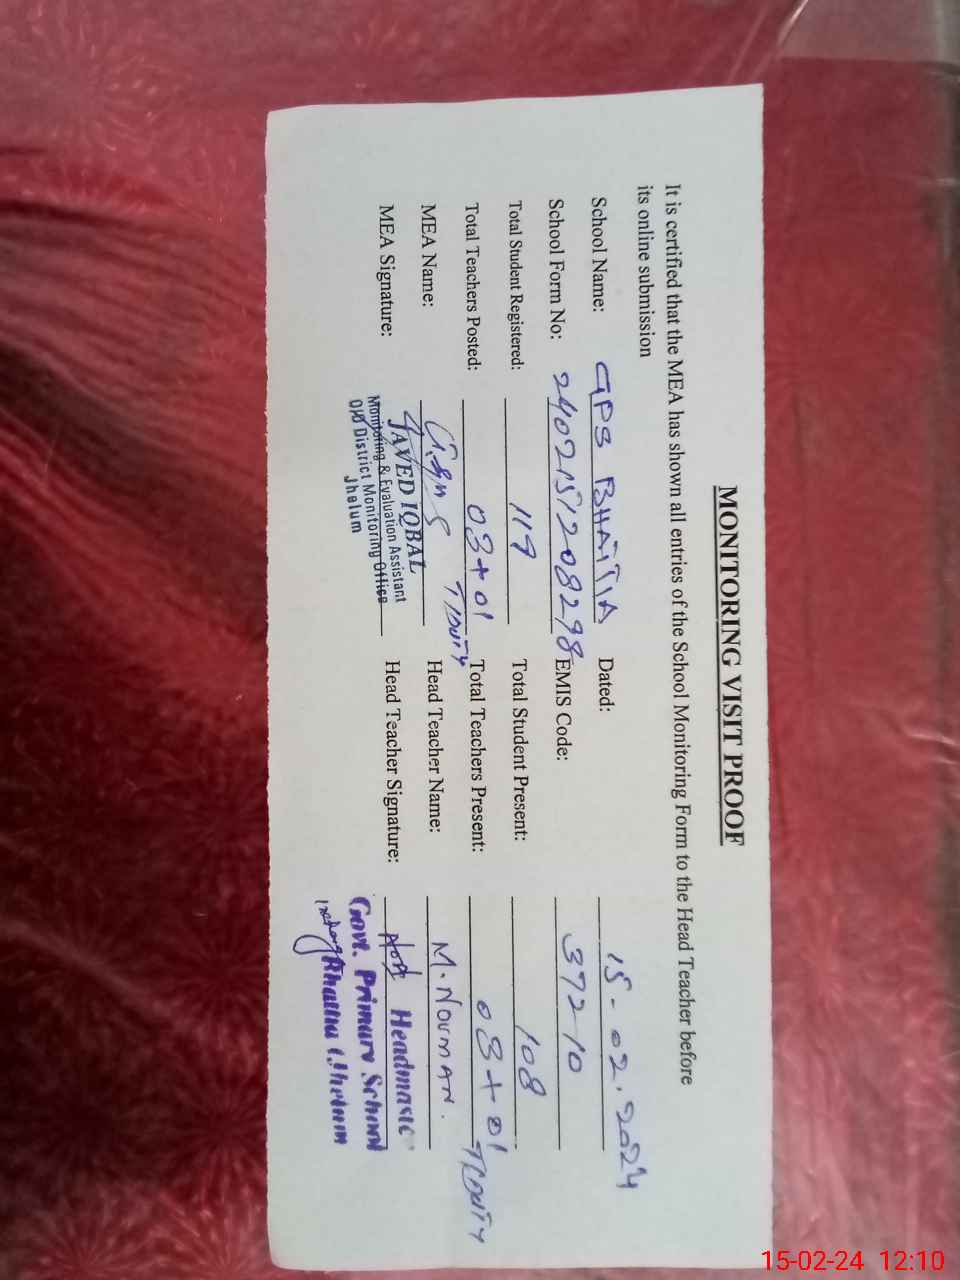 MONITORING VISIT PROOF
It is certified that the MEA has shown all entries of the School Monitoring Form to the Head Teacher before
its online submission
School Name: GPS BHATIA Dated: 15-02-2024
School Form No: 2402151208298 EMIS Code: 37210
Total Student Registered: 119 Total Student Present: 108
Total Teachers Posted: 03+01 T/DUTY Total Teachers Present: 03+01 T/DUTY
MEA Name: Head Teacher Name: M. NOUMAN.
MEA Signature: JAVED IQBAL Head Teacher Signature: Headmaste
Monitoring & Evaluation Assistant
O/O District Monitoring Office
Jhelum
Govt. Primary School
Bhattia (Jhelum
15-02-24 12:10